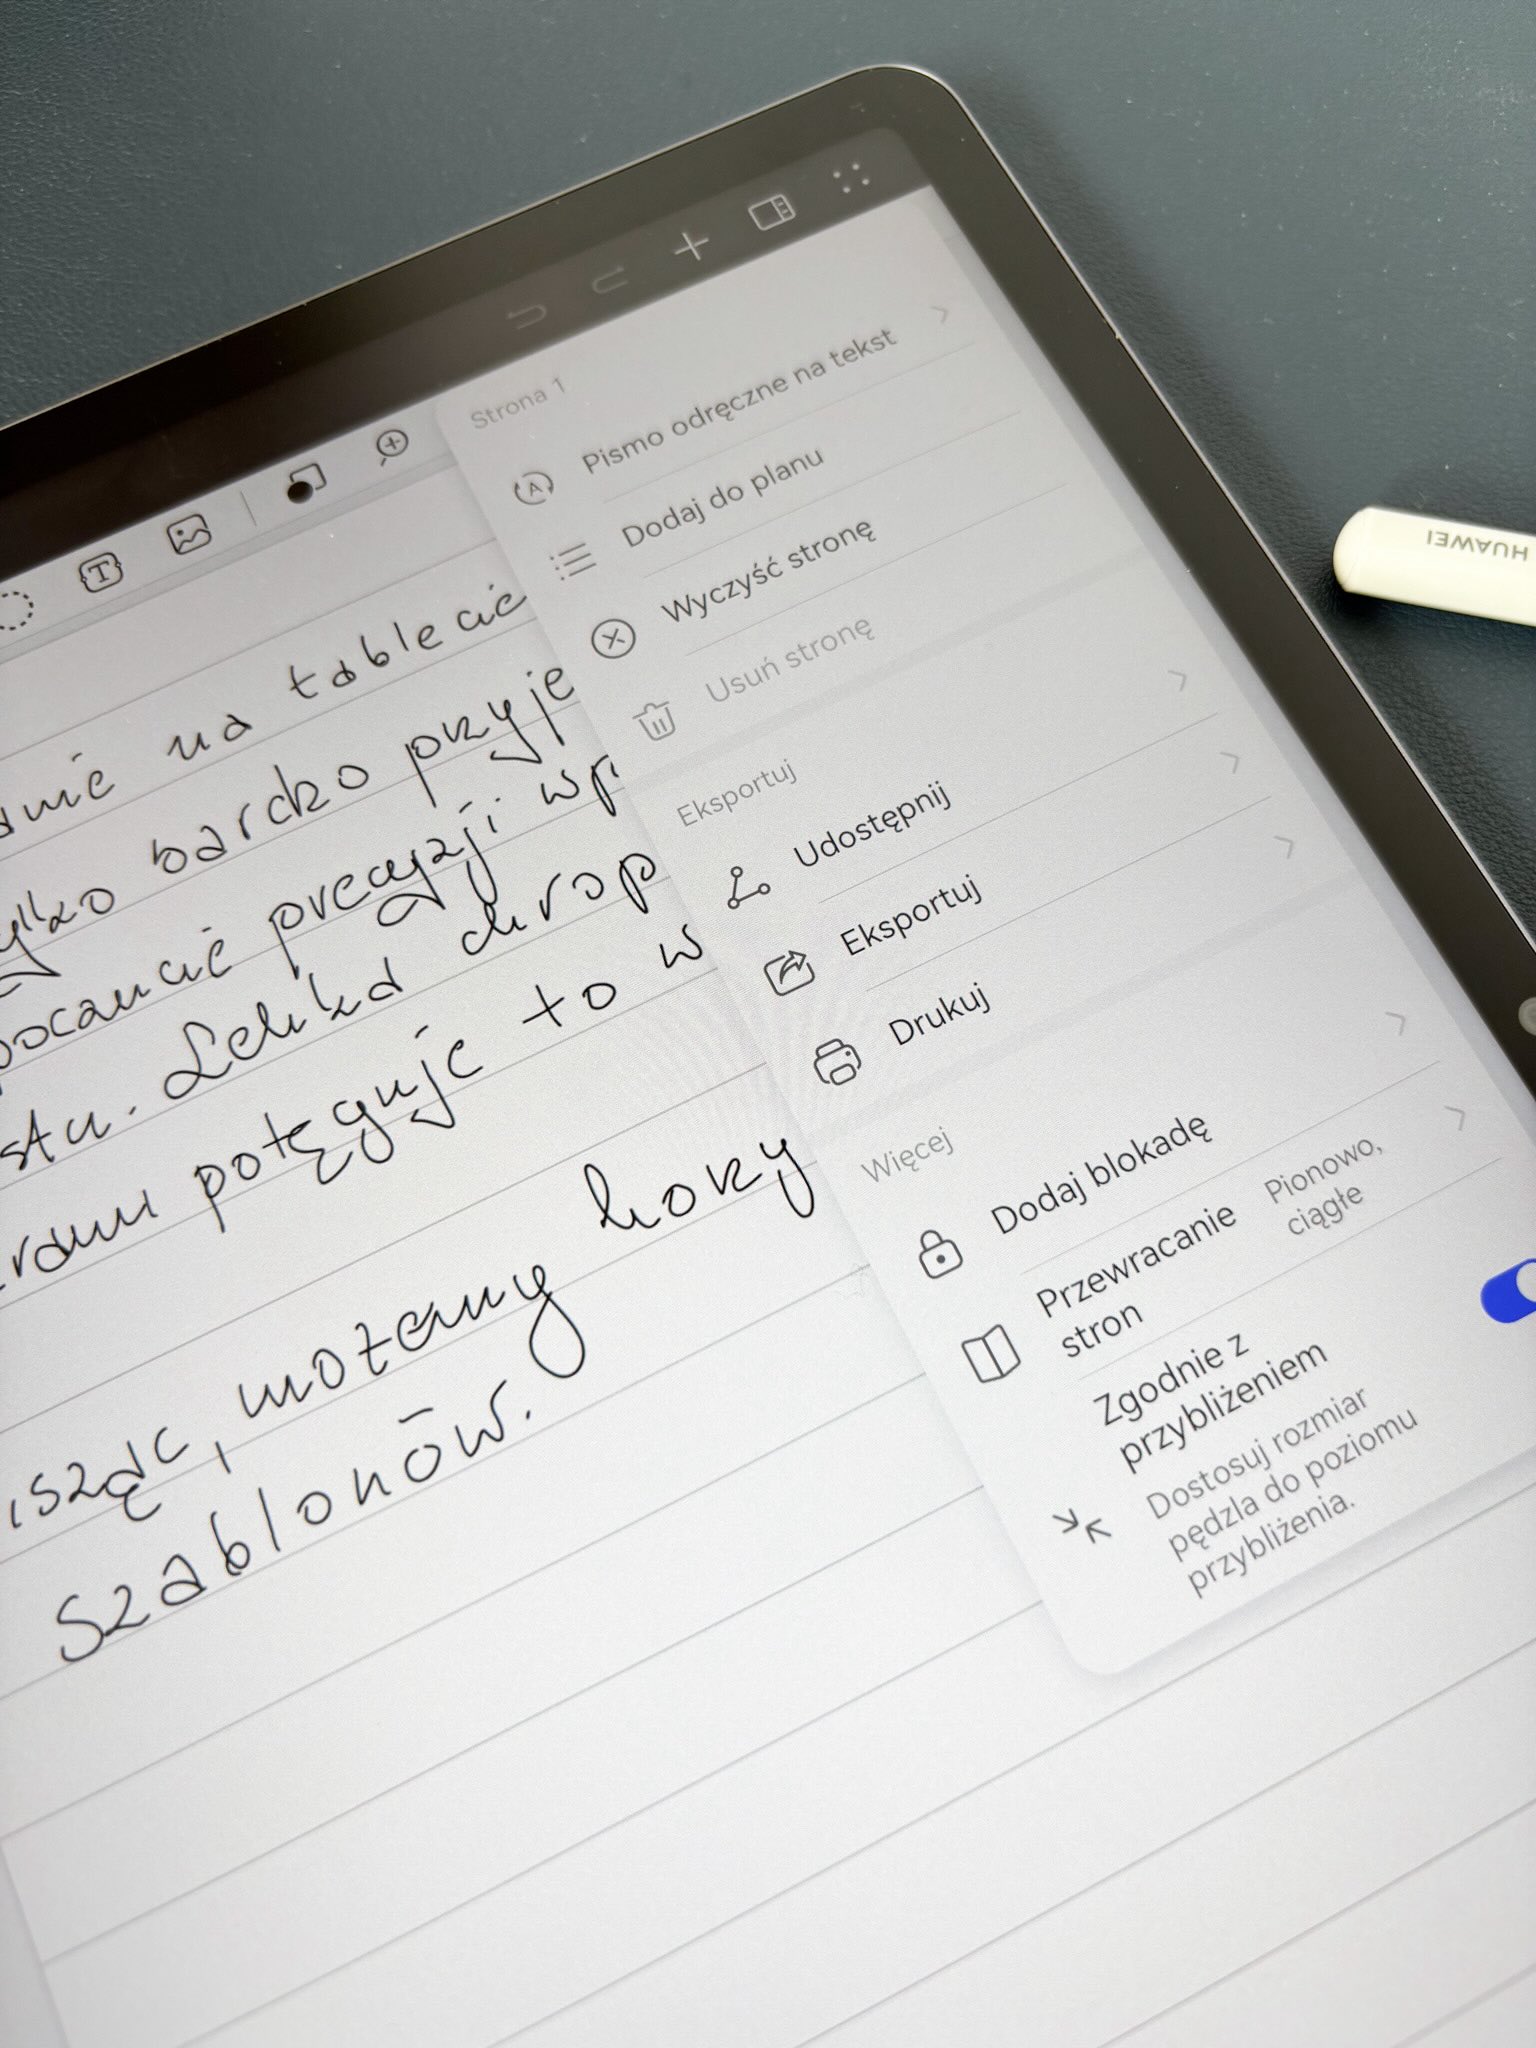 Strona 1
Pismo odręczne na tekst
Dodaj do planu
Wyczyść stronę
Usuń stronę
Eksportuj
Udostępnij
Eksportuj
Drukuj
Więcej
Dodaj blokadę
Przewracanie
stron
Pionowo,
ciągłe
Zgodnie z
przybliżeniem
Dostosuj rozmiar
pędzla do poziomu
przybliżenia.
na tablecie
bardzo przyje
precyzji wp
stu. Lekka chrop
potęguje to w
isząc, możemy korzy
szablonów.
HUAWEI